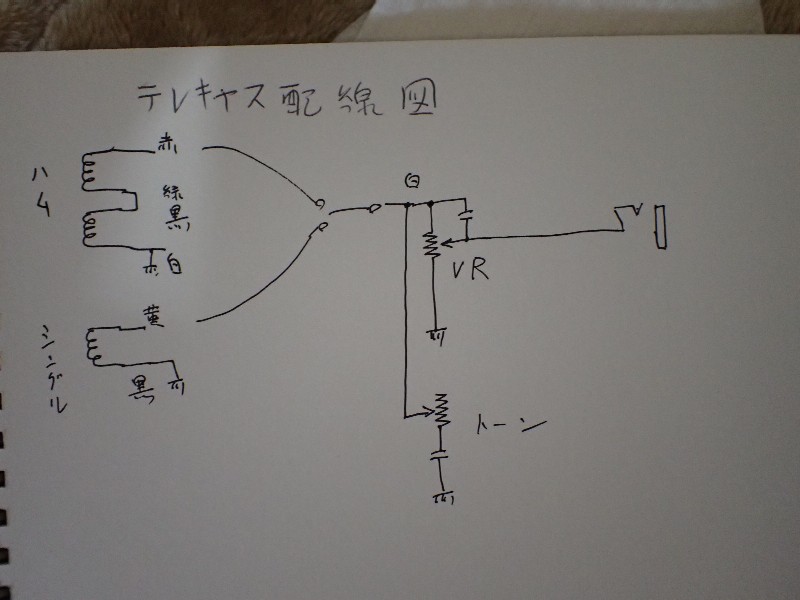 テレキャス配線図
ハム
赤
緑
黒
白
シングル
黄
黒
白
VR
トーン